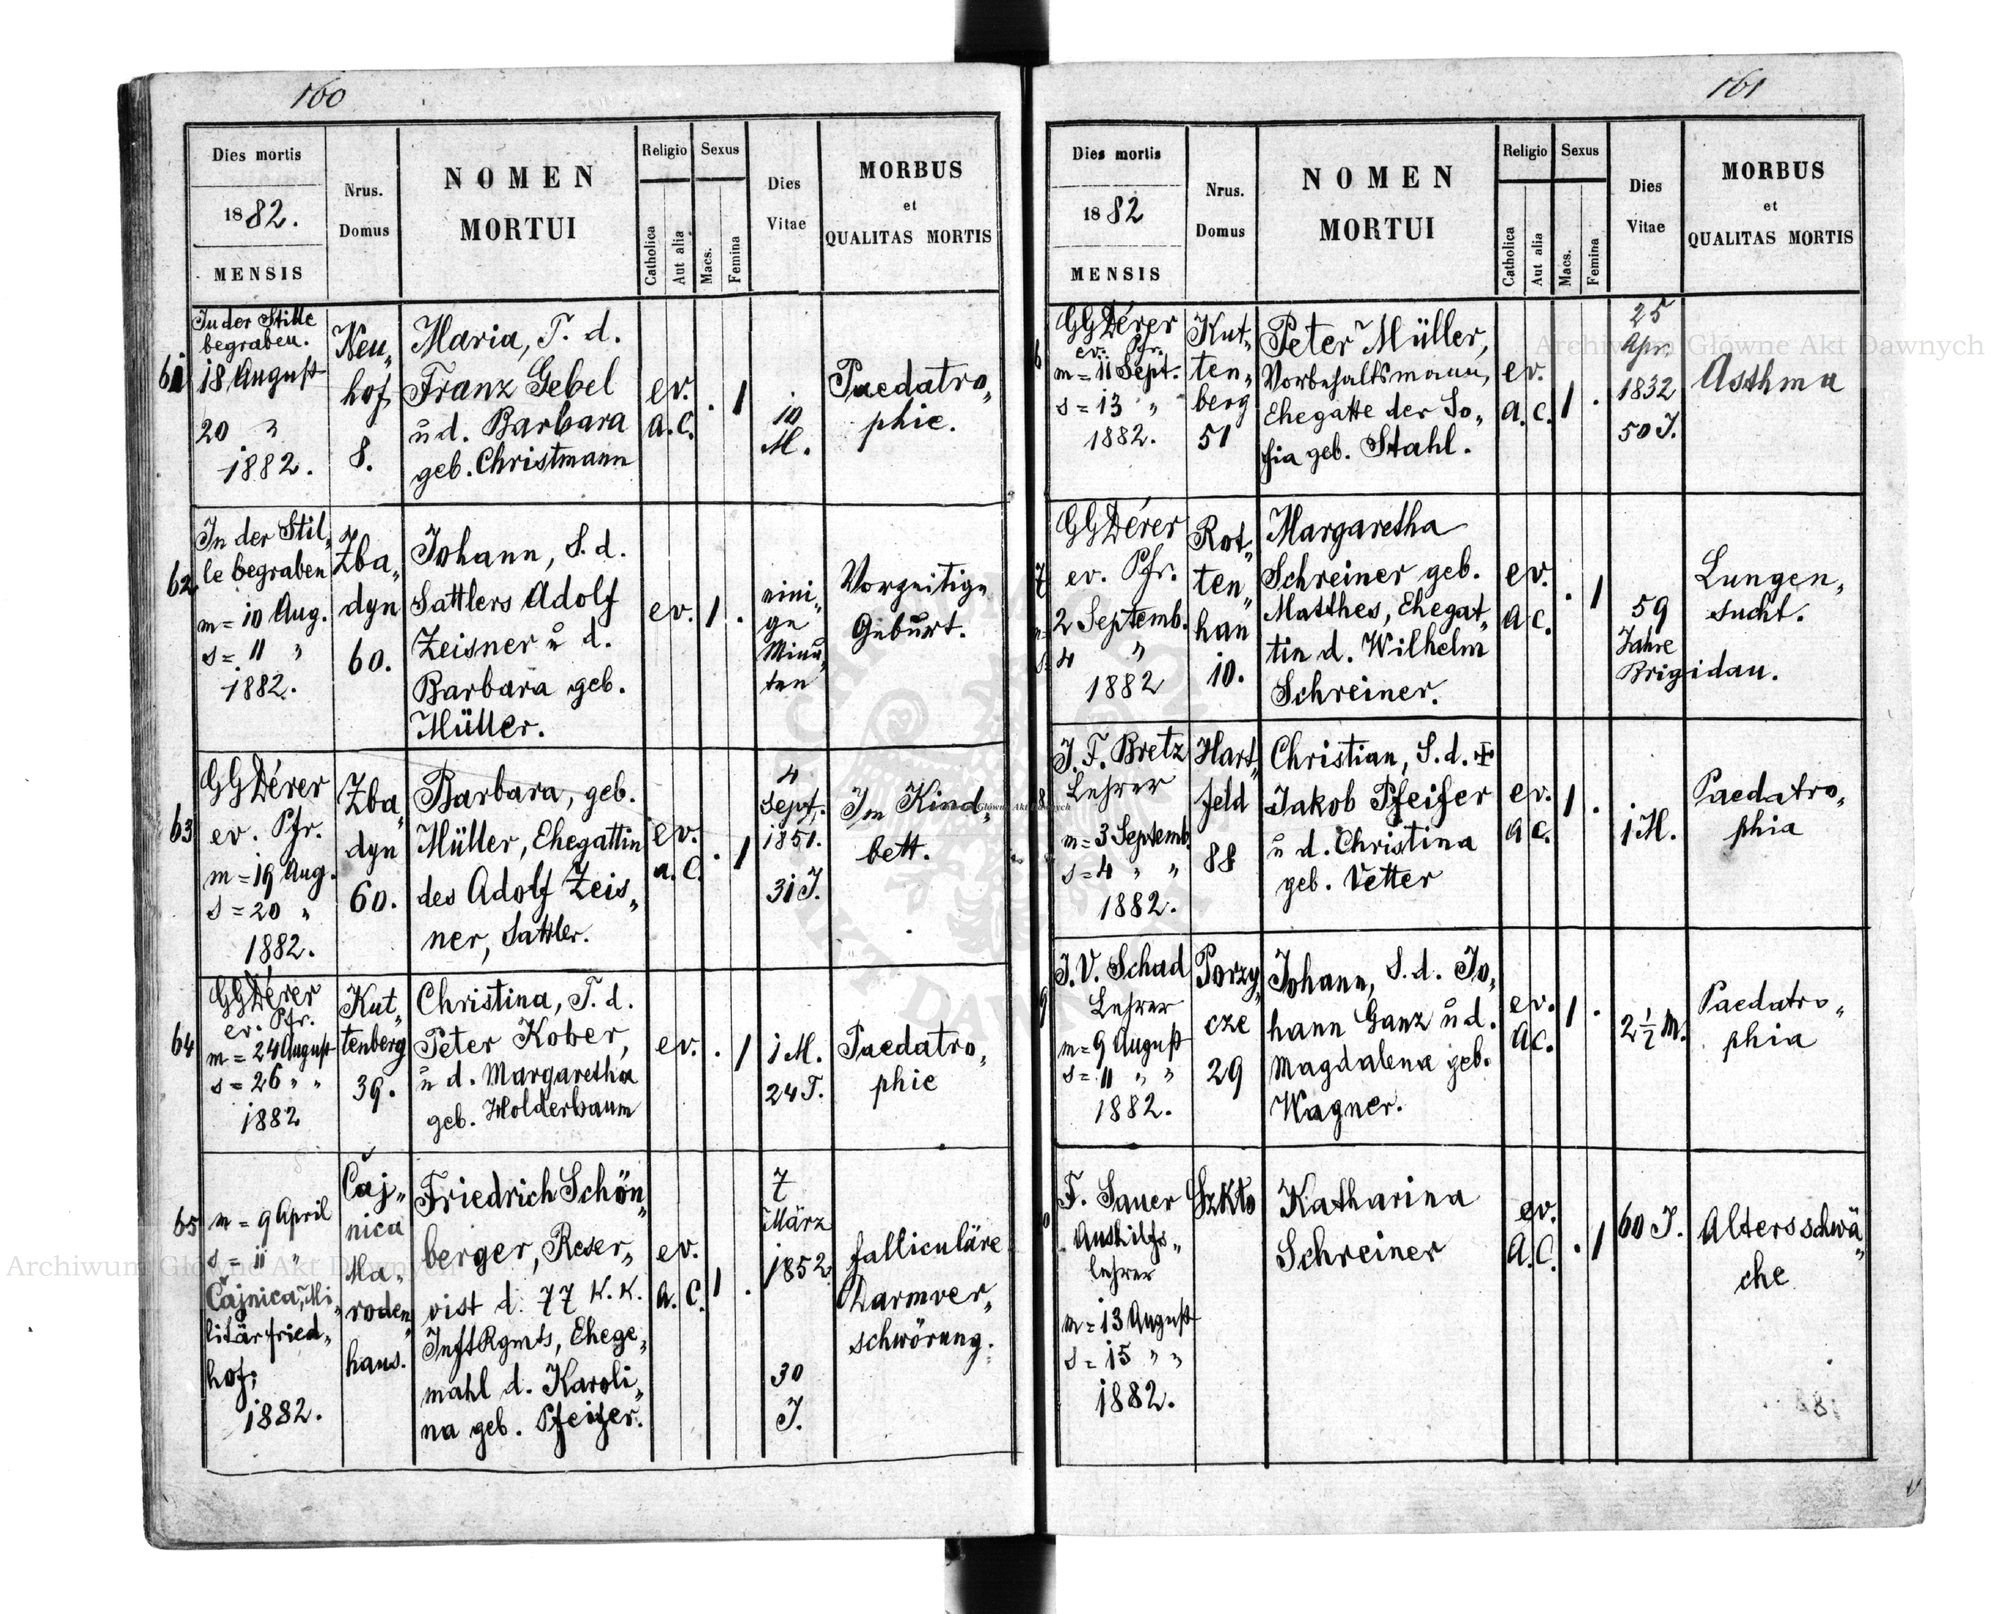 160
Dies mortis
1882.
MENSIS
Nrus.
Domus
NOMEN
MORTUI
Religio
Catholica
Aut alia
Sexus
Macs.
Femina
Dies
Vitae
MORBUS
et
QUALITAS MORTIS
61
In der Stille
begraben.
18 August
20 "
1882.
Neu-
hof
8.
Maria, T. d.
Franz Gebel
u d. Barbara
geb. Christmann
ev.
a. C.
. 1
10
M.
Paedatro-
phie.
62
In der Stil-
le begraben
m = 10 Aug.
s = 11 "
1882.
Zba-
dyn
60.
Johann, S. d.
Sattlers Adolf
Zeisner u d.
Barbara geb.
Müller.
ev.
1 .
eini-
ge
Minu-
ten
Vorzeitige
Geburt.
63
GGDérer
ev. Pfr.
m = 19 Aug.
s = 20 "
1882.
Zba-
dyn
60.
Barbara, geb.
Müller, Ehegattin
des Adolf Zeis-
ner, Sattler.
ev.
a. C.
. 1
4
Sept.
1851.
31 J.
Im Kind-
bett.
64
GGDérer
ev. Pfr.
m = 24 August
s = 26 " "
1882
Kut-
tenberg
39.
Christina, T. d.
Peter Kober,
u d. Margaretha
geb. Holderbaum
ev.
. 1
1 M.
24 T.
Paedatro-
phie
65
m = 9 April
s = 11 "
Čajnica, Mi-
litärfried-
hof;
1882.
Čaj-
nica
Ma-
roden-
haus.
Friedrich Schön-
berger, Reser-
vist d. 77 K. K.
InftRgmts, Ehege-
mahl d. Karoli-
na geb. Pfeifer.
ev.
a. C.
1 .
7
März
1852
30
J.
falliculäre
Darmver-
schwörung.
161
Dies mortis
1882
MENSIS
Nrus.
Domus
NOMEN
MORTUI
Religio
Catholica
Aut alia
Sexus
Macs.
Femina
Dies
Vitae
MORBUS
et
QUALITAS MORTIS
6
GGDérer
ev. Pfr.
m = 11 Sept.
s = 13 "
1882.
Kut-
ten-
berg
51
Peter Müller,
Vorbehaltsmann,
Ehegatte der So-
fia geb. Stahl.
ev.
a. C.
1 .
25
Apr.
1832
50 J.
Asthma
7
GGDérer
ev. Pfr.
2 Septemb.
4 "
1882
Rot-
ten-
han
10.
Margaretha
Schreiner geb.
Matthes, Ehegat-
tin d. Wilhelm
Schreiner.
ev.
a C.
. 1
59
Jahre
Brigidau.
Lungen-
sucht.
8
J. F. Bretz
Lehrer
m = 3 Septemb.
s = 4 " "
1882.
Hart-
feld
88
Christian, S. d. ✠
Jakob Pfeifer
u d. Christina
geb. Vetter
ev.
a C.
1 .
1 M.
Paedatro-
phia
9
J. V. Schad
Lehrer
m = 9 August
s = 11 " "
1882.
Porzy-
cze
29
Johann, S. d. Jo-
hann Ganz u d.
Magdalena geb.
Wagner.
ev.
a C.
1 .
2 1/2 M.
Paedatro-
phia
F. Sauer
Aushilfs-
lehrer
m = 13 August
s = 15 " "
1882.
Szkto
Katharina
Schreiner
ev.
A. C.
. 1
60 J.
Altersschwä-
che
Archiwum Główne Akt Dawnych
Archiwum Główne Akt Dawnych